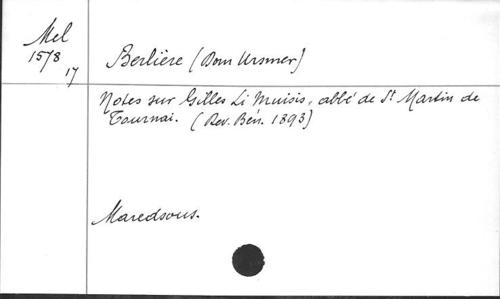 Mel
1578
17
Berlière (Dom Ursmer)
Notes sur Gilles Li Muisis, abbé de St Martin de
Tournai. (Rev. Bén. 1893)
Maredsous.